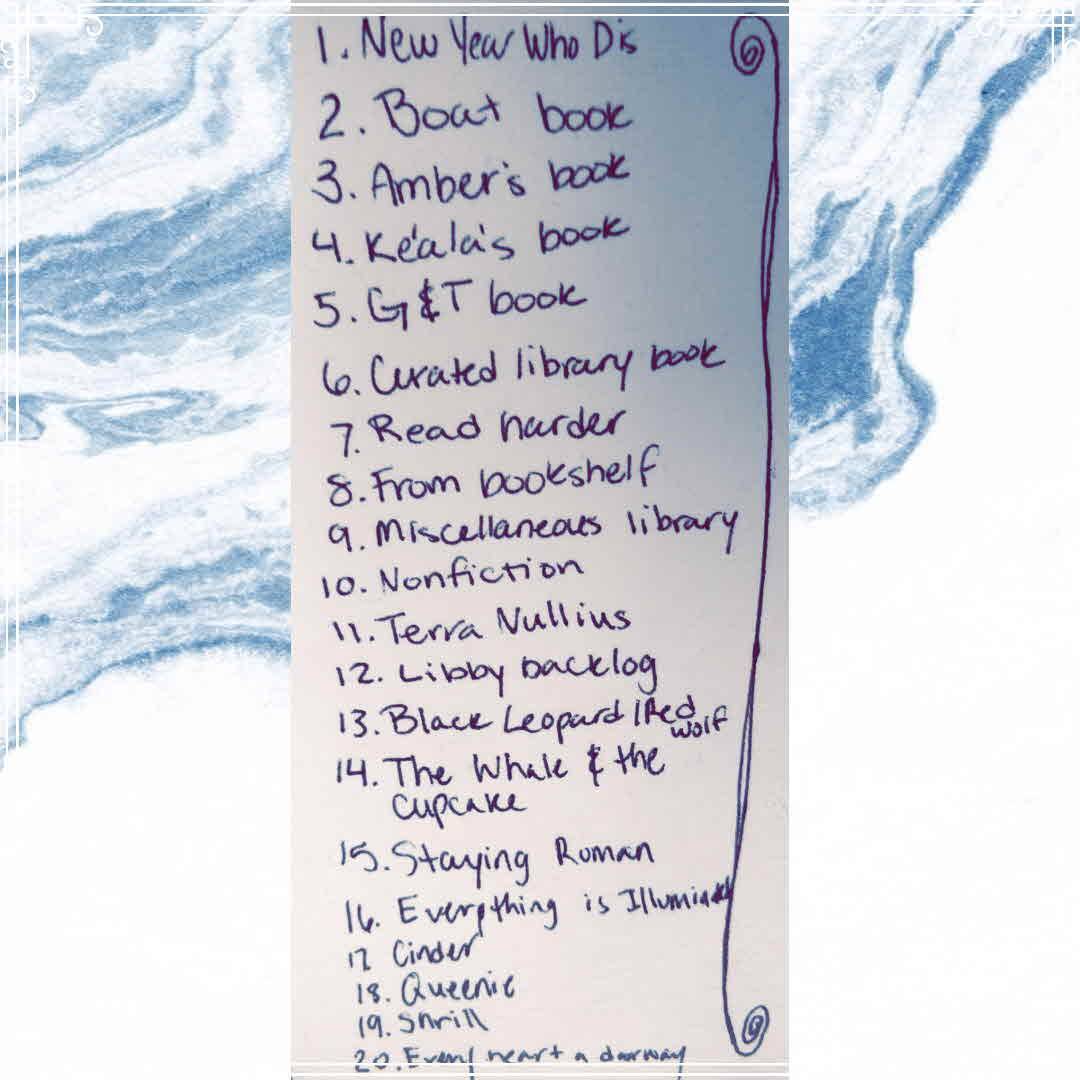 1. New Year Who Dis
2. Boat book
3. Amber's book
4. Ke'ala's book
5. G&T book
6. Curated library book
7. Read harder
8. From bookshelf
9. Miscellaneous library
10. Nonfiction
11. Terra Nullius
12. Libby backlog
13. Black Leopard / Red
wolf
14. The Whale & the
cupcake
15. Staying Roman
16. Everything is Illuminated
17 Cinder
18. Queenie
19. Shrill
20. Every heart a doorway